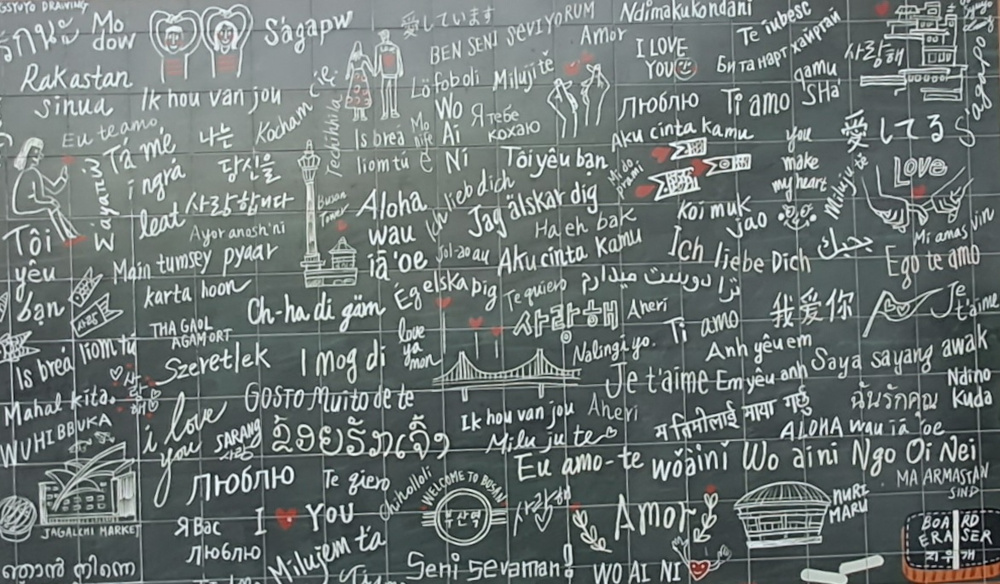 Mo
dow
Ságapw
愛しています
BEN SENI SEVIYORUM
Ndimakukondani
Te iubesc
Amor
I LOVE
YOU
Би та нарт хайртай
사랑해
Rakastan
sinua
Ik hou van jou
Kocham Cię
Techihhila
Löfoboli
Miluji tě
Wo
Ai
Ní
Я тебе
кохаю
Люблю
Ti amo
gamu
SHa
Eu te amo
Tá mé
i ngrá
leat
나는
당신을
사랑합니다
Is breá
liom tú
Aku cinta kamu
you
make
my heart
愛してる
LOVE
Wayanui
Ayor anosh'ni
Busan
Tower
Aloha
wau
iā 'oe
Ich lieb dich
Tôi yêu bạn
Jag älskar dig
Ha eh bak
Jol-ao au
Aku cinta Kamu
Mi do
prami
Koi muk
jao
Miluju tě
Ich liebe Dich
بحبك
Mi amas vin
Ego te amo
Tôi
yêu
bạn
Main tumsey pyaar
karta hoon
Ch-ha di gärn
Ég elska þig
Te quiero
ترا دوست میدارم
사랑해
Aheri
Ti amo
我爱你
Je
t'aime
THA GAOL
AGAM ORT
Is breá liom tú
Szeretlek
I mog di
love
ya
mon
Nalingi yo.
Anh yêu em
Saya sayang awak
Je t'aime
Em yêu anh
Ndino
Kuda
Mahal kita.
WUHIBBUKA
i love
you
GOSTO Muito de te
SARANG
사랑
ຂ້ອຍຮັກເຈົ້າ
Ik hou van jou
Milu ju te
Aheri
म तिमीलाई माया गर्छु
ฉันรักคุณ
ALOHA wau iā 'oe
Eu amo-te
wǒ ài nǐ
Wo ai ni
Ngo Oi Nei
MA ARMASTAN
SIND
JAGALCHI MARKET
Люблю
Te qiero
chiholloli
WELCOME TO BUSAN
부산역
사랑해
Amor
NURI
MARU
BOARD
ERASER
지우개
Я Вас
Люблю
I YOU
Milujem ťa
Seni Sevaman
WO AI NI
ഞാൻ നിന്നെ